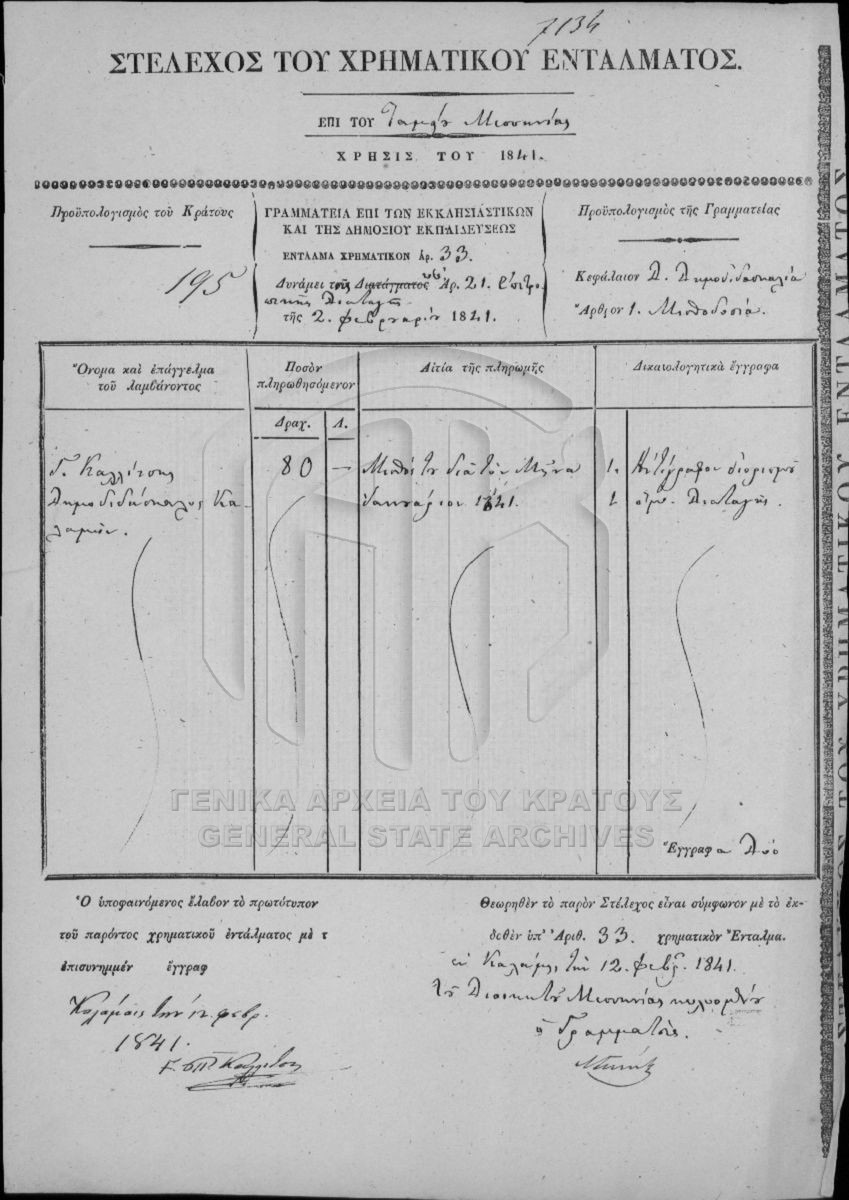 7134
ΣΤΕΛΕΧΟΣ ΤΟΥ ΧΡΗΜΑΤΙΚΟΥ ΕΝΤΑΛΜΑΤΟΣ.
ΕΠΙ ΤΟΥ Ταμείου Μεσσηνίας
ΧΡΗΣΙΣ ΤΟΥ 1841.
Προϋπολογισμὸς τοῦ Κράτους
195
ΓΡΑΜΜΑΤΕΙΑ ΕΠΙ ΤΩΝ ΕΚΚΛΗΣΙΑΣΤΙΚΩΝ
ΚΑΙ ΤΗΣ ΔΗΜΟΣΙΟΥ ΕΚΠΑΙΔΕΥΣΕΩΣ
ΕΝΤΑΛΜΑ ΧΡΗΜΑΤΙΚΟΝ ἀρ. 33.
Δυνάμει τῆς Διατάγματος Ἀρ. 21. ἐπιτρο
πικῆς Διαταγῆς
τῆς 2. φεβρουαρίου 1841.
Προϋπολογισμὸς τῆς Γραμματείας
Κεφάλαιον Δ. Δημοδιδασκαλία
Ἄρθρον 1. Μισθοδοσία.
Ὄνομα καὶ ἐπάγγελμα
τοῦ λαμβάνοντος
Ποσὸν
πληρωθησόμενον
Αἰτία τῆς πληρωμῆς
Δικαιολογητικὰ ἔγγραφα
Δραχ. Λ.
Γ. Καλλίτσης
Δημοδιδάσκαλος Κα-
λαμῶν.
80 —
Μισθός του διὰ τὸν Μῆνα
Ἰανουάριον 1841.
1. Ἀντίγραφον διορισμοῦ
1 ὁμ. Διαταγῆς.
ΓΕΝΙΚΑ ΑΡΧΕΙΑ ΤΟΥ ΚΡΑΤΟΥΣ
GENERAL STATE ARCHIVES
Ἔγγραφα Δύο
Ὁ ὑποφαινόμενος ἔλαβον τὸ πρωτότυπον
τοῦ παρόντος χρηματικοῦ ἐντάλματος μὲ τ
ἐπισυνημμέν ἔγγραφ
Καλάμαις τὴν 12 φεβρ.
1841.
Θεωρηθὲν τὸ παρὸν Στέλεχος εἶναι σύμφωνον μὲ τὸ ἐκ-
δοθὲν ὑπ' Ἀριθ. 33. χρηματικὸν Ἔνταλμα.
ἐν Καλάμαις τὴν 12. φεβρ. 1841.
τοῦ Διοικητοῦ Μεσσηνίας κωλυομένου
ὁ Γραμματεύς.
ΣΤΕΛΕΧΟΣ ΤΟΥ ΧΡΗΜΑΤΙΚΟΥ ΕΝΤΑΛΜΑΤΟΣ